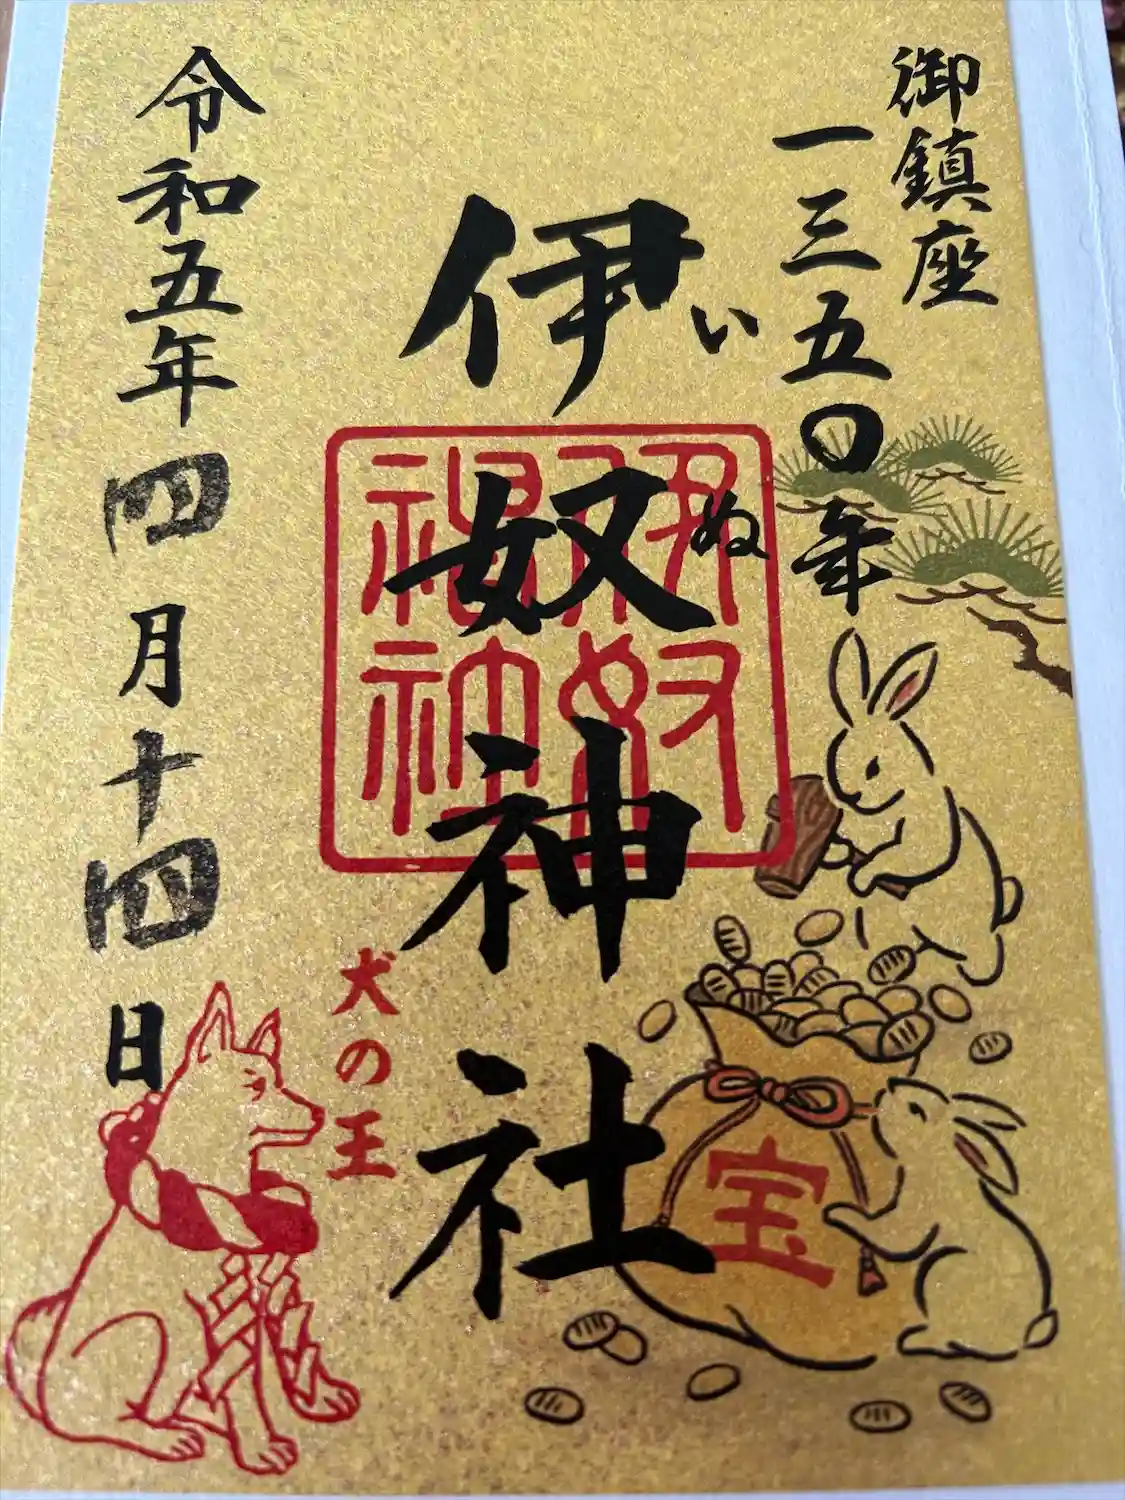 御鎮座
一三五〇年
伊奴神社
いぬ
伊奴
神社
宝
犬の王
令和五年四月十四日